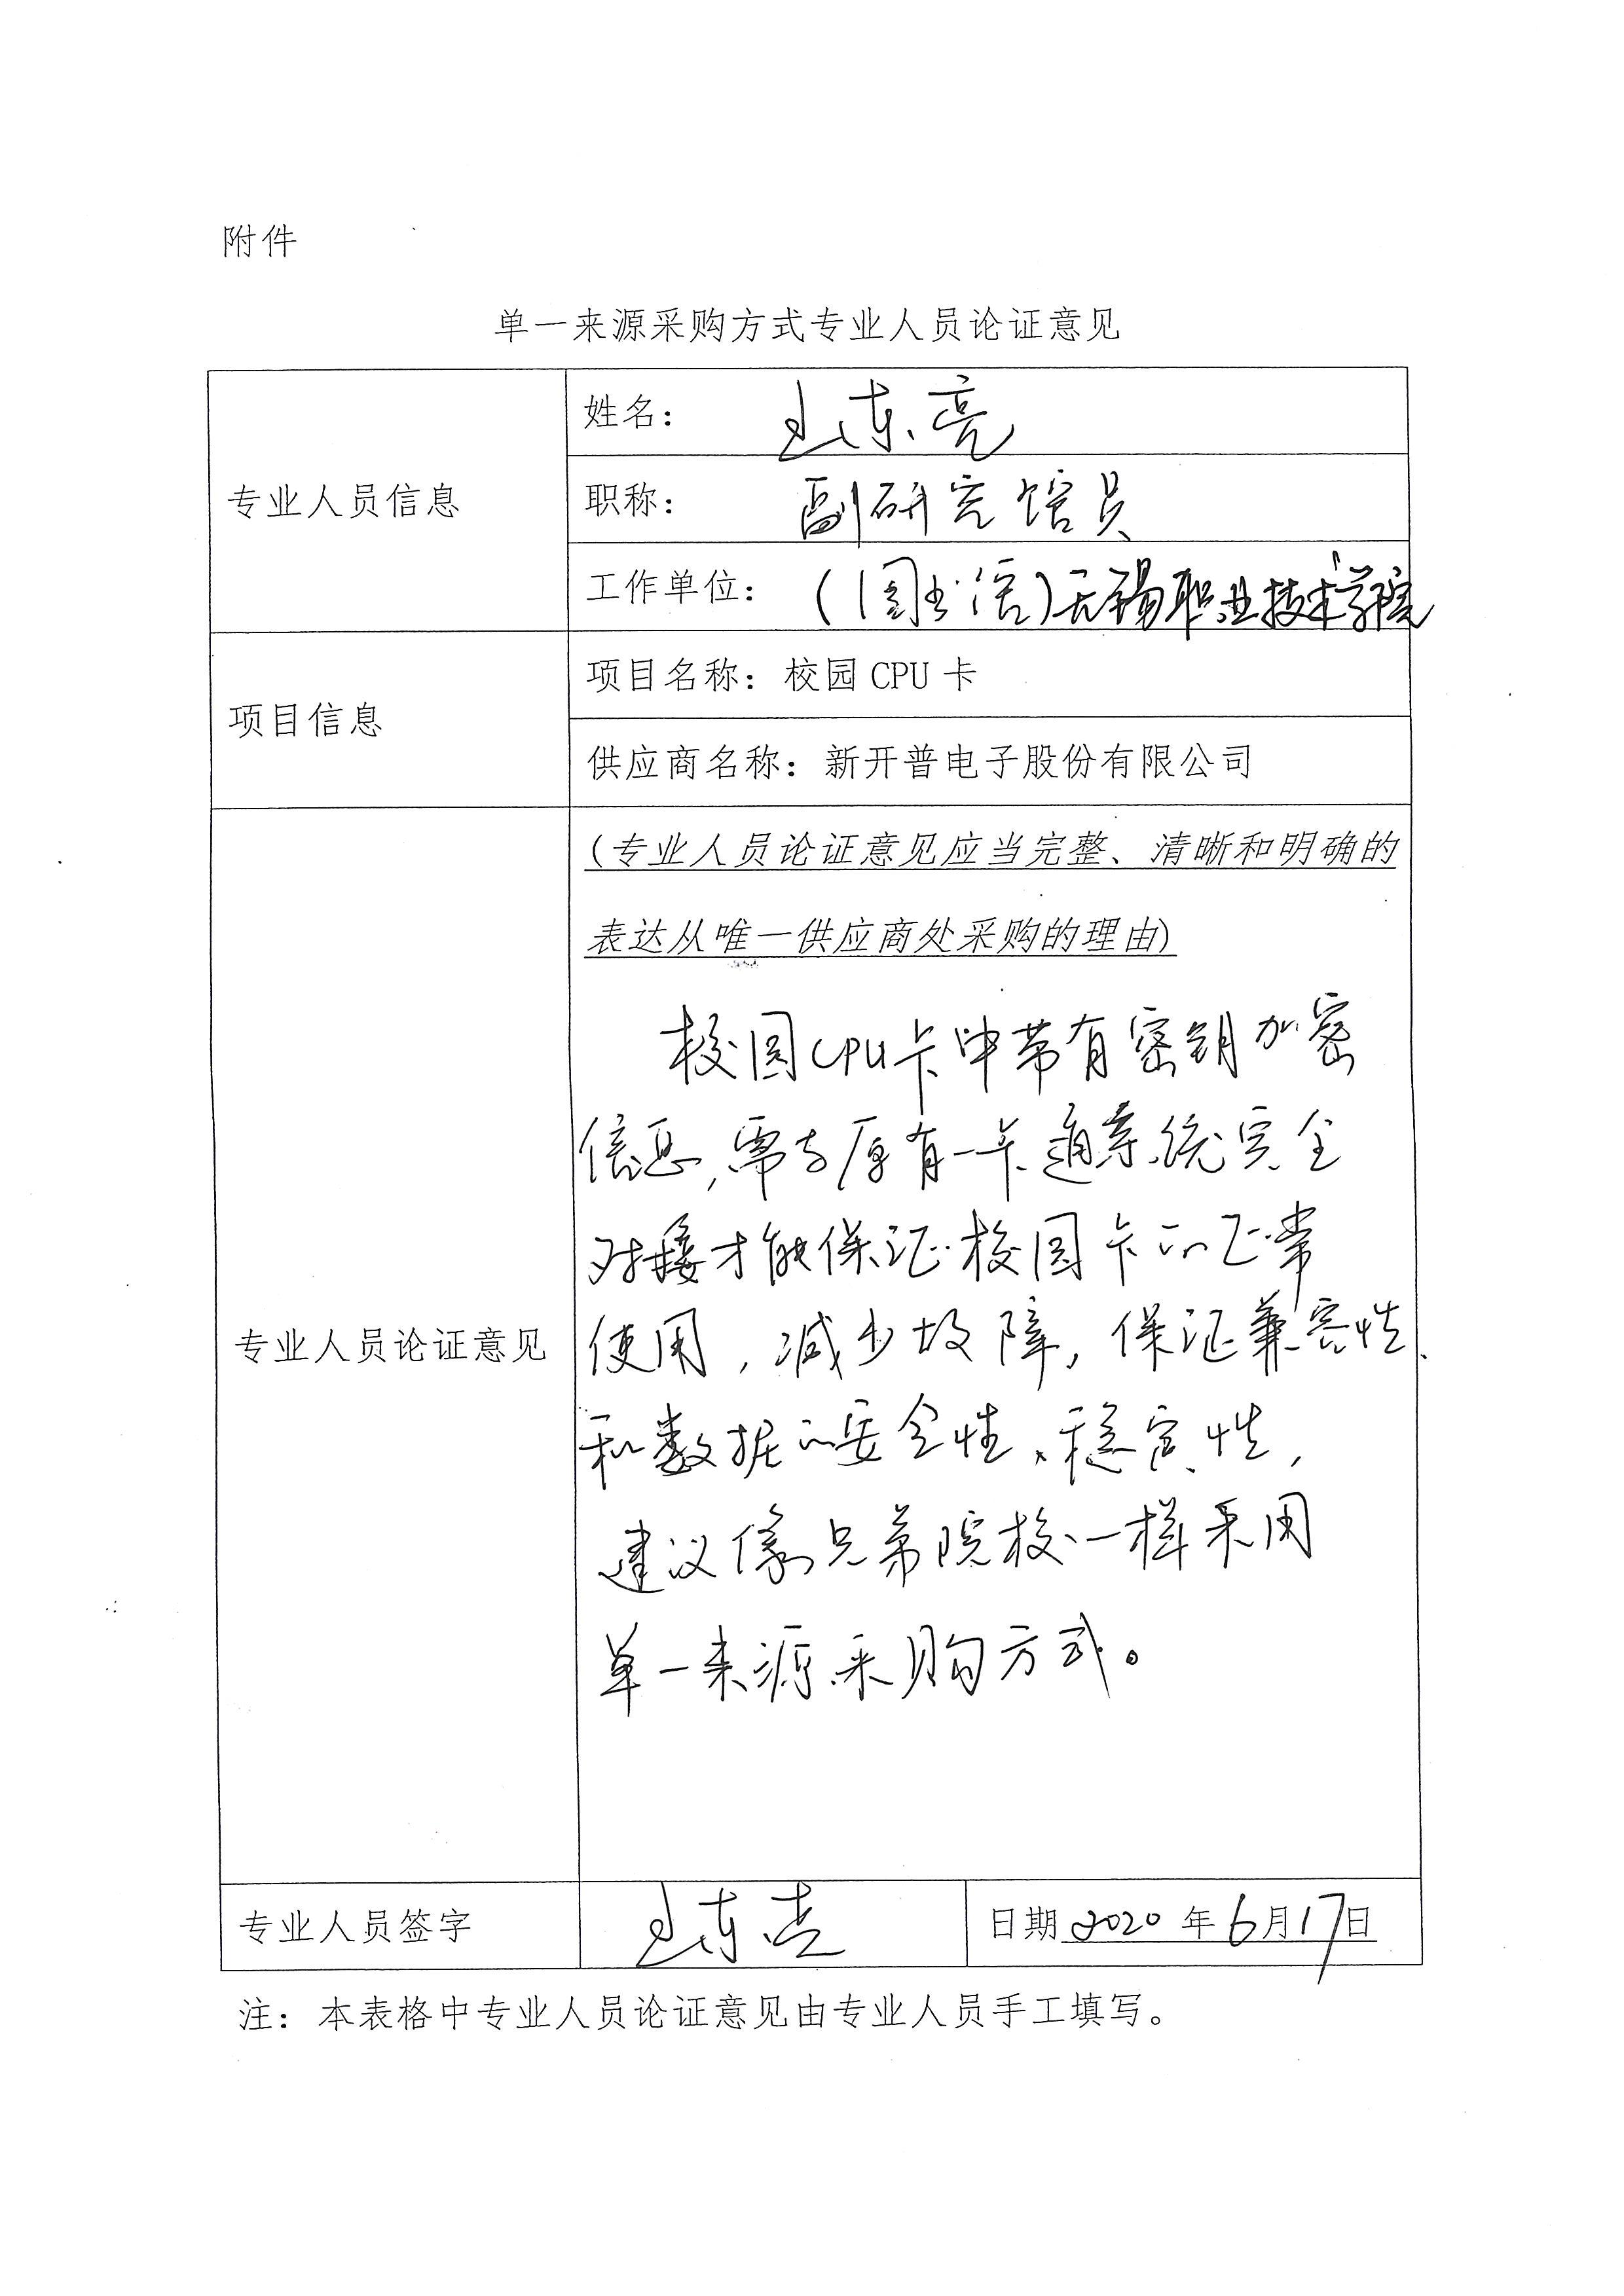 附件
单一来源采购方式专业人员论证意见
专业人员信息
姓名： 王东亮
职称： 副研究馆员
工作单位：（图书馆）无锡职业技术学院
项目信息
项目名称：校园 CPU 卡
供应商名称：新开普电子股份有限公司
专业人员论证意见
(专业人员论证意见应当完整、清晰和明确的
表达从唯一供应商处采购的理由)
校园CPU卡中带有密钥加密
信息，需与原有一卡通系统完全
对接才能保证校园卡的正常
使用，减少故障，保证兼容性
和数据的安全性、稳定性，
建议像兄弟院校一样采用
单一来源采购方式。
专业人员签字
王东亮
日期 2020 年 6月17日
注：本表格中专业人员论证意见由专业人员手工填写。